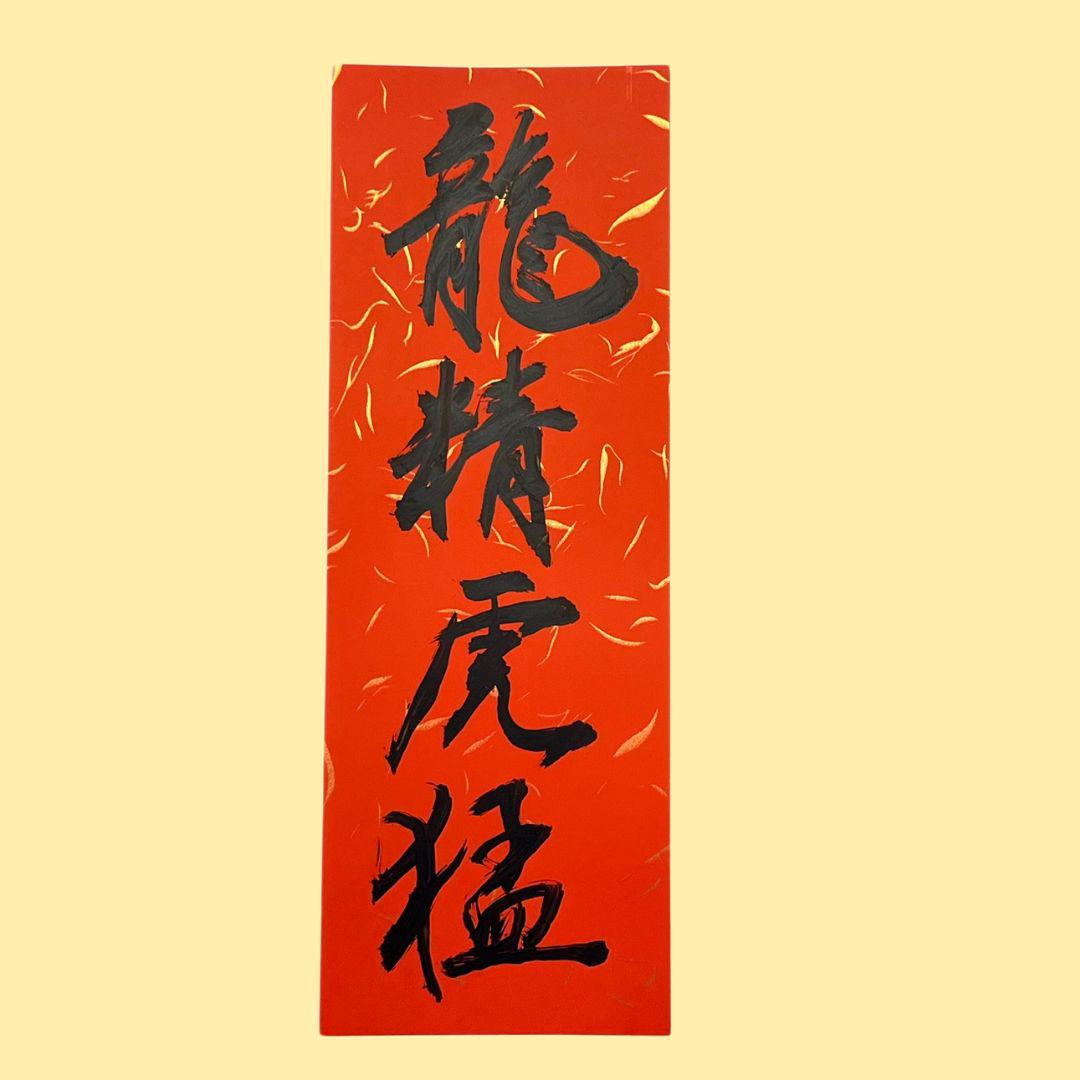 龍精虎猛